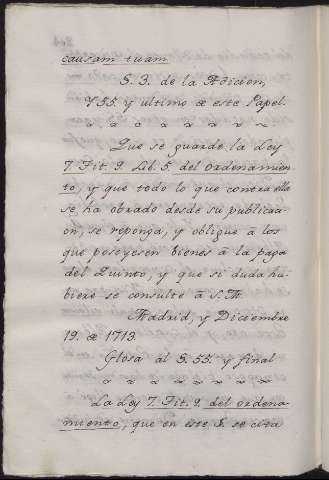 causam tuam
§. 3. de la Adicion,
Y 55. y ultimo de este Papel.
Que se guarde la Ley
7. Tit. 9. Lib. 5. del ordenamien-
to, y que todo lo que contra ella
se ha obrado desde su publicaci-
on, se reponga, y obligue à los
que poseyesen bienes à la paga
del Quinto, y que si duda hu-
biere se consulte à S. M.
Madrid, y Diciembre
19. de 1713.
Glosa al §. 55. y final
La Ley 7. Tit. 9. del ordena-
miento, que en este §. se cita